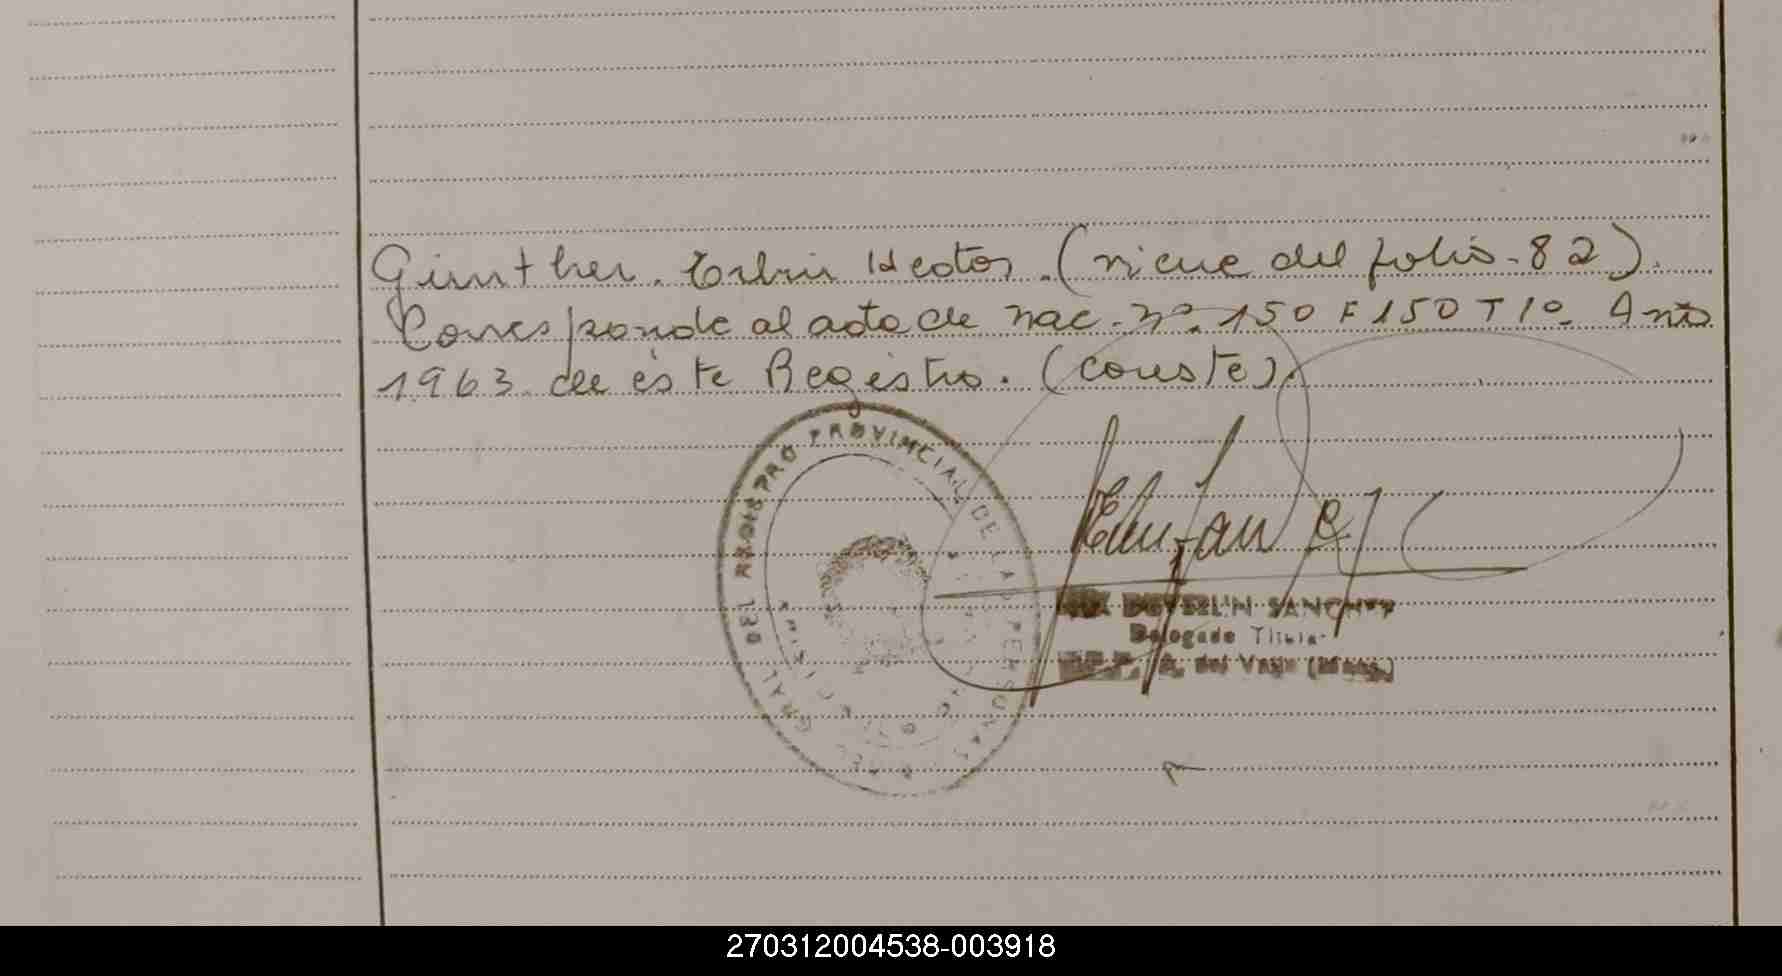 Günther. Erbin Hector. (viene del folio-82).
Corresponde al acta de nac. nº. 150 F 150 T 1º Año
1963 de éste Registro. (conste).
GRAL DEL REGISTRO PROVINCIAL DE LAS PERSONAS
SANCHEZ
Delegado
del Valle
270312004538-003918